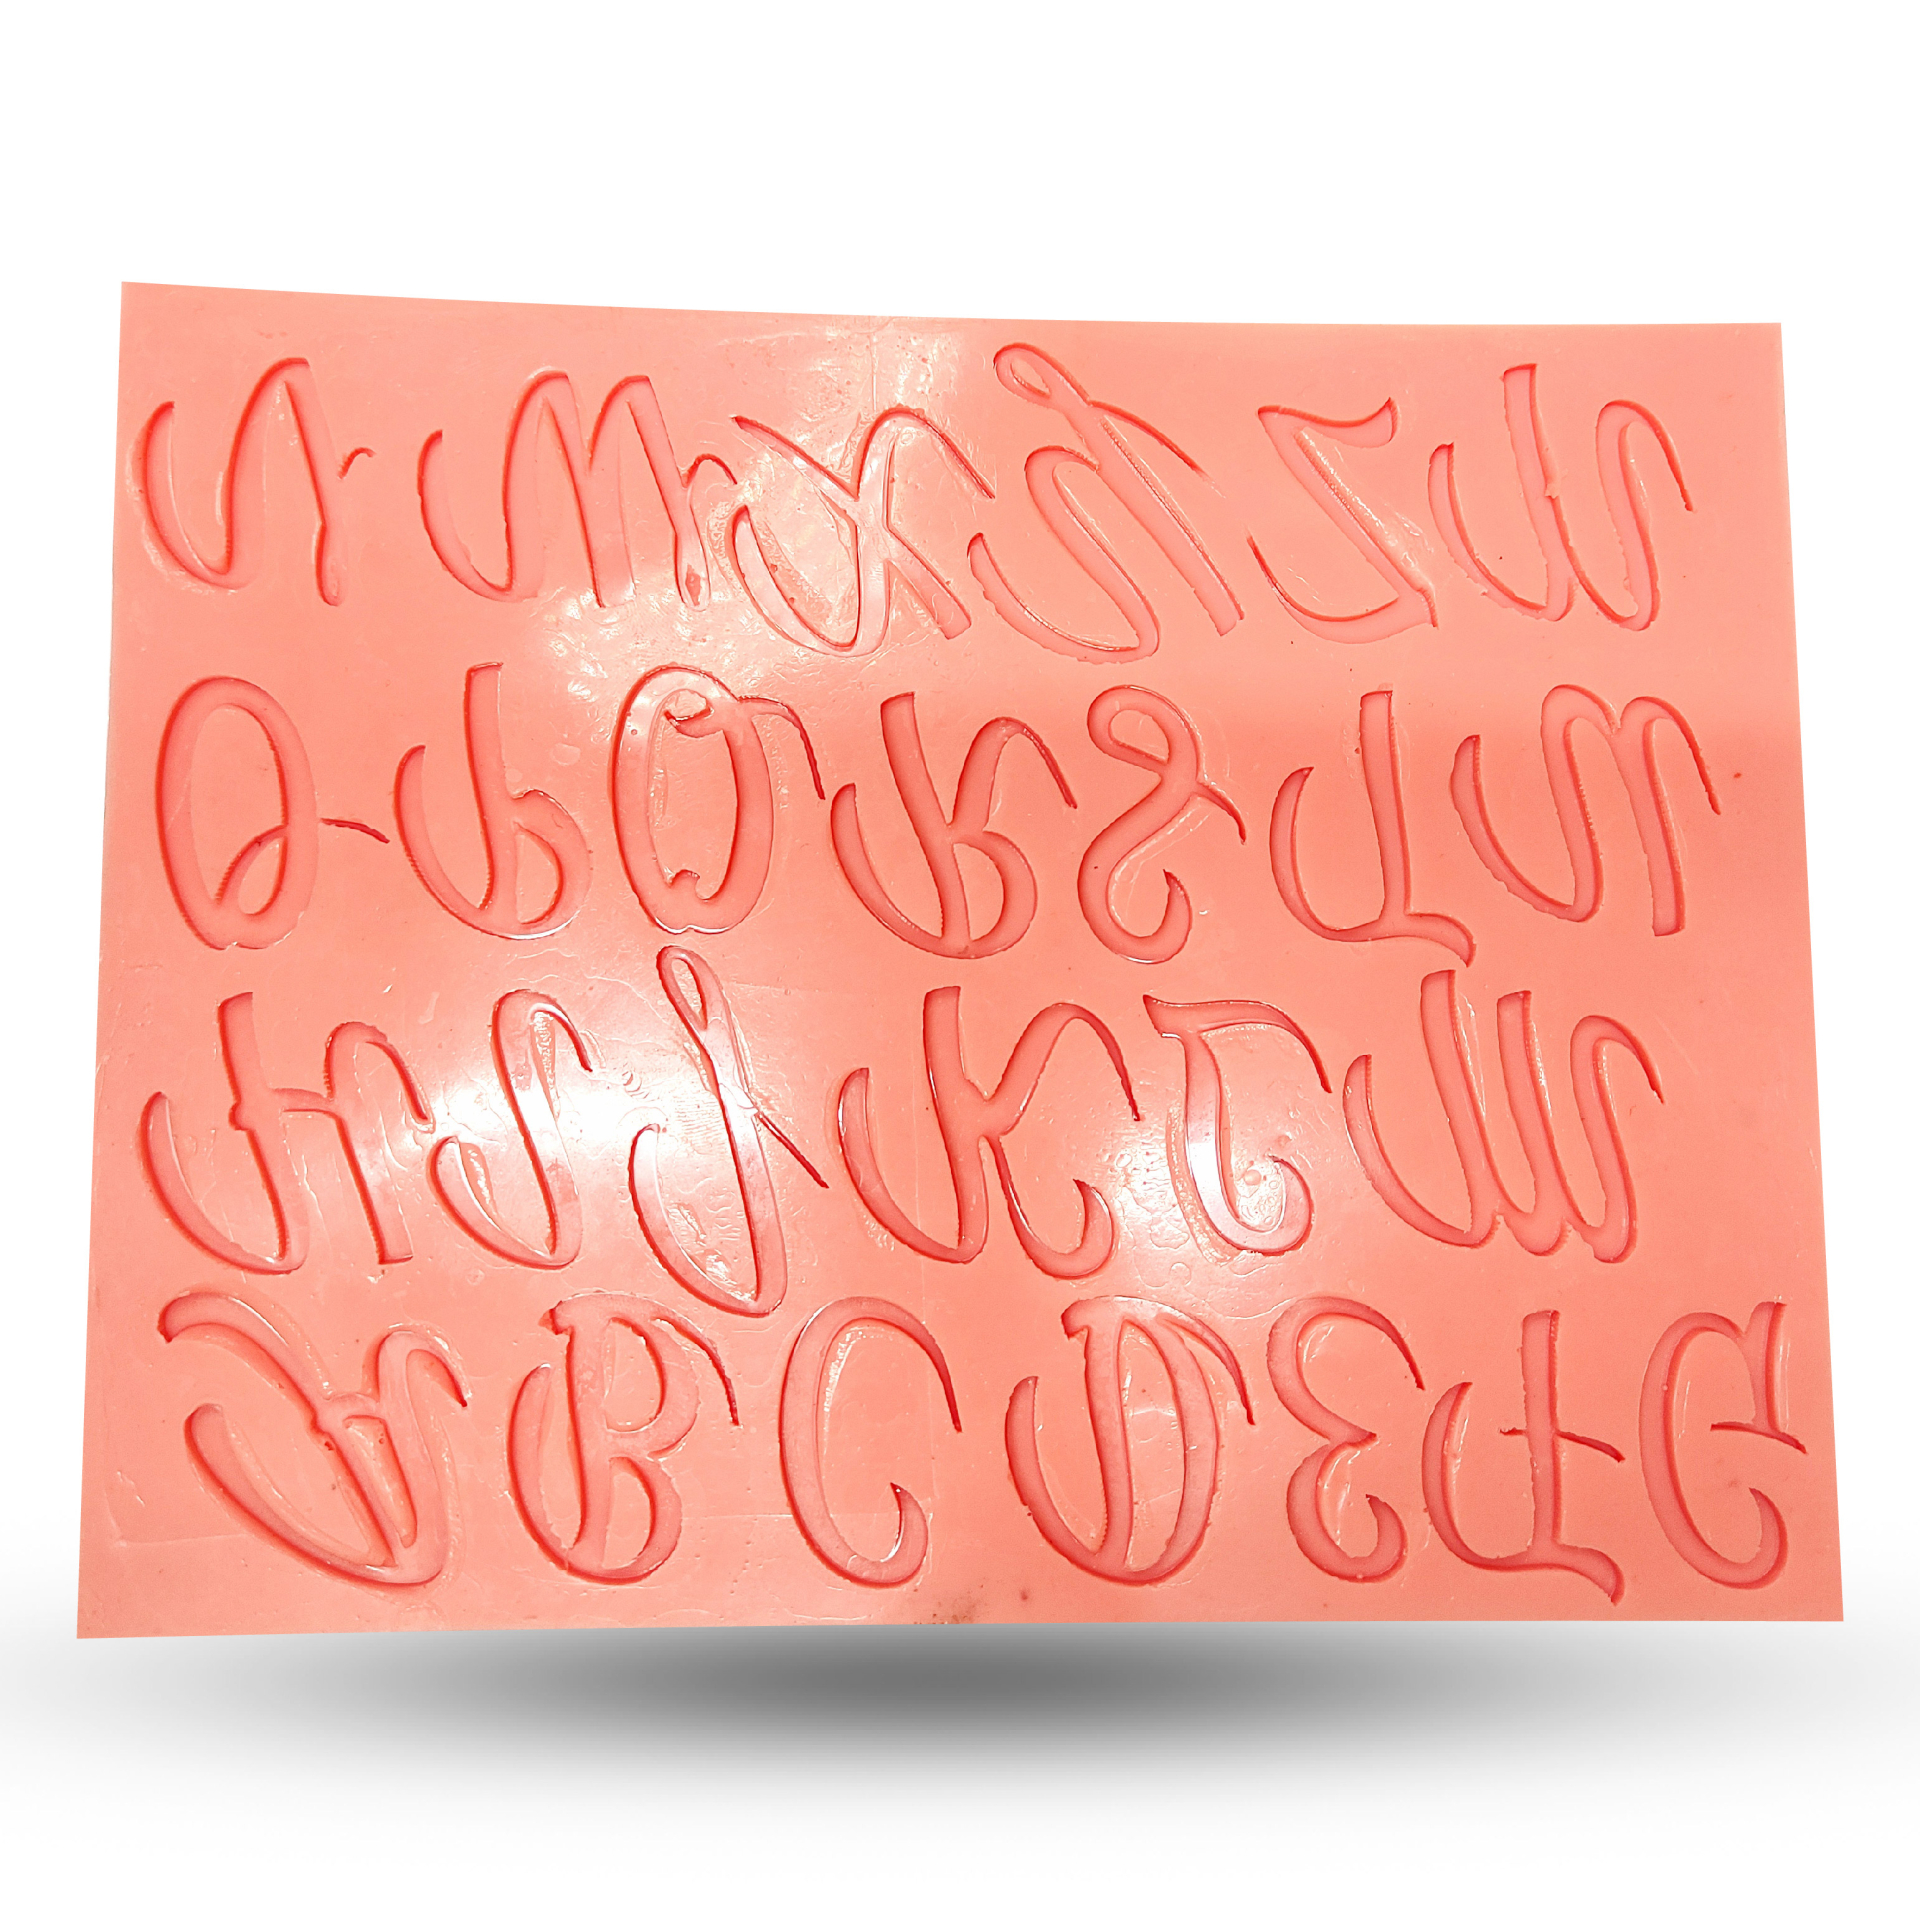 A B C D E F G
H I J K L M
O P Q R S T U
V W X Y Z N